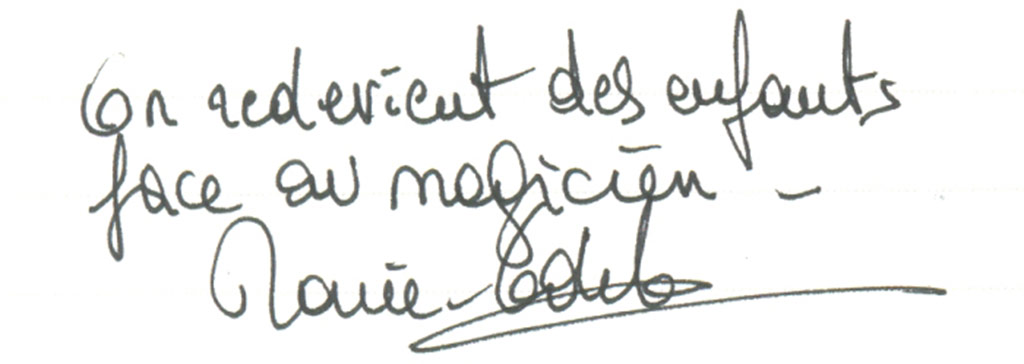 On redevient des enfants
face au magicien -
Marie-Edith